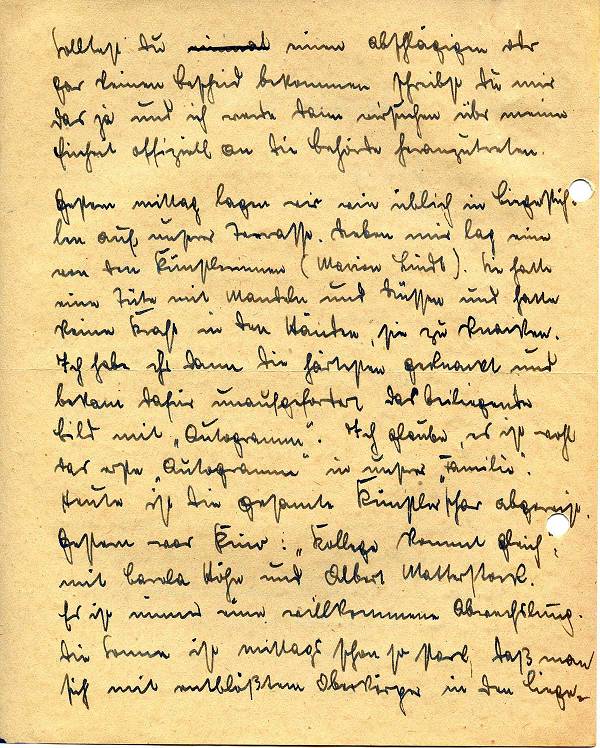 Solltest Du einen abschlägigen oder
gar keinen Bescheid bekommen schreibst Du mir
das ja und ich werde dann versuchen über meine
Einheit offiziell an die Behörde heranzutreten.
Gestern mittag lagen wir wie üblich in Liegestüh-
len auf unserer Terrasse. Neben mir lag eine
von den Künstlerinnen (Marion Lindt). Sie hatte
eine Tüte mit Mandeln und Nüssen und hatte
keine Kraft in den Händen, sie zu knacken.
Ich habe ihr dann die härtesten geknackt und
bekam dafür unaufgefordert das beiliegende
Bild mit „Autogramm“. Ich glaube, es ist wohl
das erste „Autogramm“ in unserer „Familie“.
Heute ist die gesamte Künstlerschar abgereist.
Gestern war Kino: „Kollege kommt gleich“,
mit Carola Höhn und Albert Matterstock.
Es ist immer eine willkommene Abwechslung.
Die Sonne ist mittags schon so stark, daß man
sich mit entblößtem Oberkörper in den Liege-